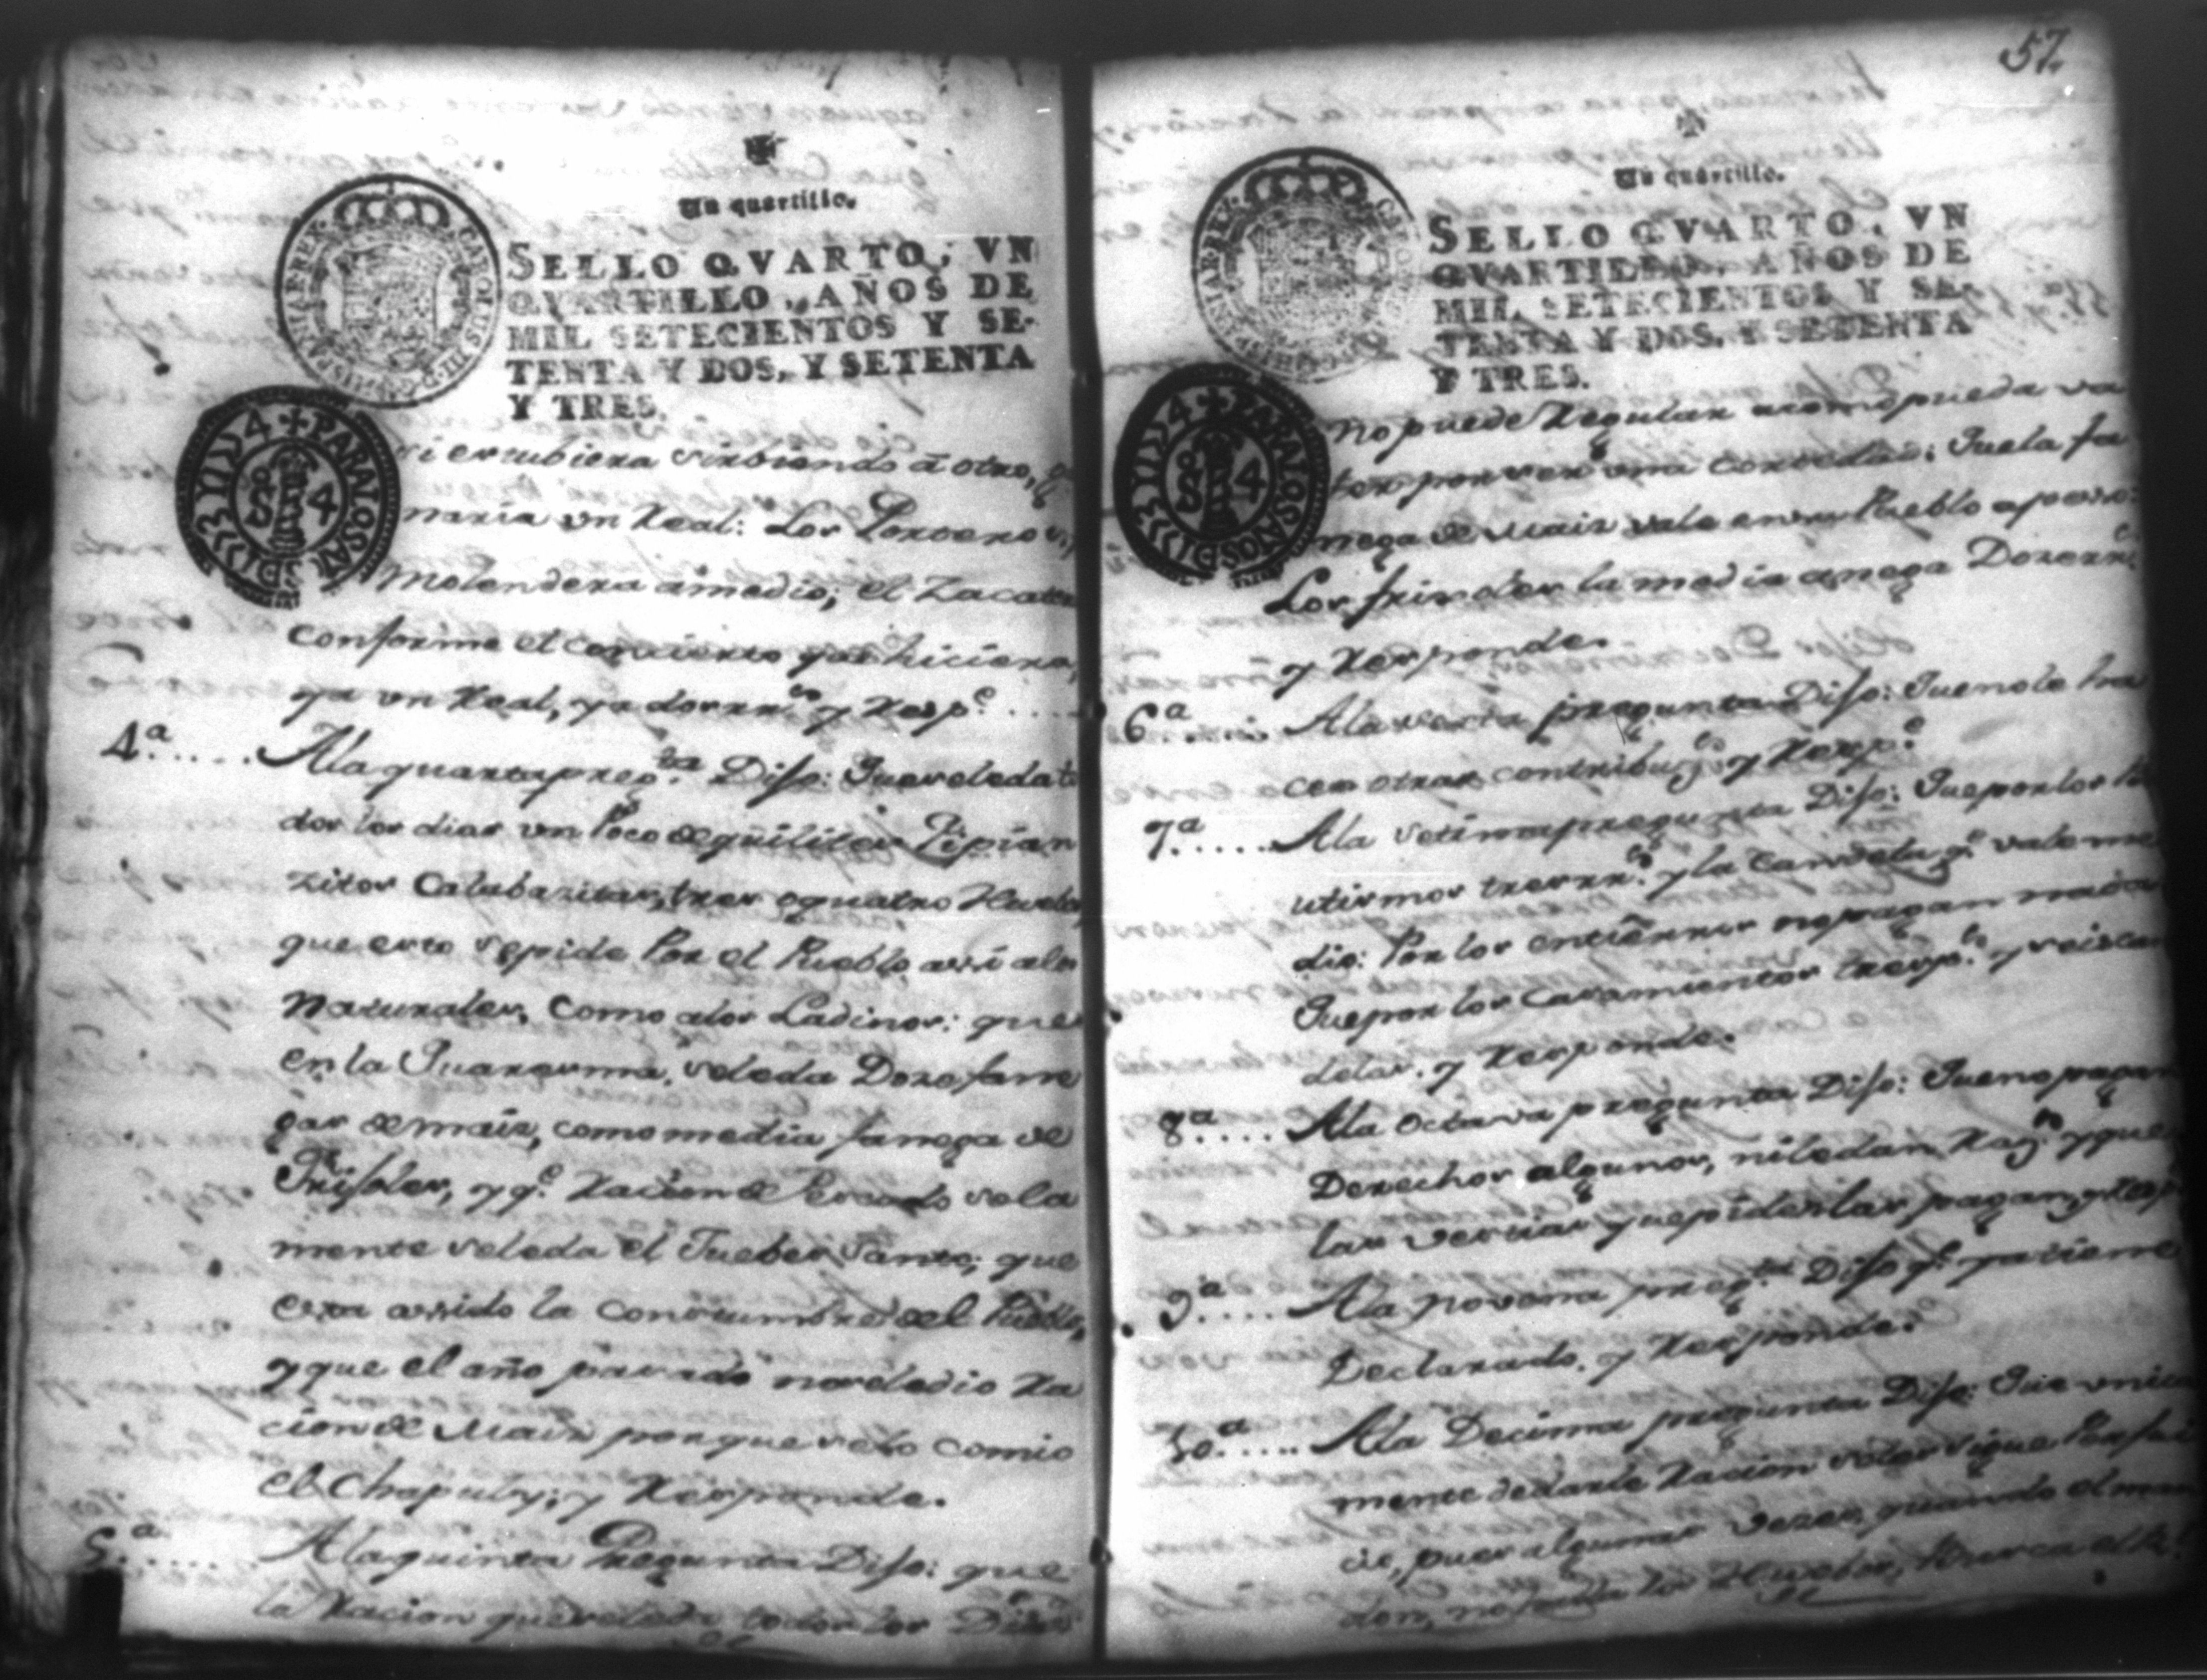 Un quartillo.
SELLO QVARTO, VN
QVARTILLO, AÑOS DE
MIL SETECIENTOS Y SE-
TENTA Y DOS, Y SETENTA
Y TRES.
CAROLUS III D G HISPANIAR REX
PARA LOS AN
si estubiera sirbiendo á otro,
naria un Real: Los Porteros,
Molendera a medio; el Zacate
conforme el concierto q.e se hiciera,
ya un Real, ya dos rr.s y Resp.e
4.a Ala quarta preg.ta Dijo: Que se le da to
dos los dias un Poco de quilites Pipian
zitos Calabazitas, tres o quatro Huebos,
que esto se pide Por el Pueblo assi alos
Naturales, como alos Ladinos: que
en la Quaresma, se le da Doze fane
gas de maiz, como media fanega de
Frijoles, y q.e Racion de Pescado sola
mente se le da el Juebes Santo, que
esta assido la constumbre del Pueblo,
y que el año pasado no se le dio Ra
cion de Maiz porque se lo comio
el Chapulin; y Responde.
5.a Ala quinta Pregunta Dijo: que
la Racion que se le da todos los Dias
57.
Un quartillo.
SELLO QVARTO, VN
QVARTILLO, AÑOS DE
MIL SETECIENTOS Y SE-
TENTA Y DOS, Y SETENTA
Y TRES.
PARA LOS AN
no puede Regular acomo pueda va
ler por ser una cortedad: Que la fa
nega de Maiz vale en su Pueblo a peso:
Los frijoles la media anega Doze rr.s
y Responde.
6.a Ala sexta pregunta Dijo: Que no le ha
cen otras contribuz.s y Resp.e
7.a Ala setima pregunta Dijo: Que por los Ba
utismos tres rr.s y la Candela q.e vale me
dio: Por los entierros no pagan nada
Que por los casamientos tres p.s y seis can
delas. y Responde.
8.a Ala Octava pregunta Dijo: Que no pagan
Derechos algunos, ni le dan Raz.n y que
las vestias que piden las pagan y Resp.
9.a Ala novena preg.ta Dijo q.e ya tiene
Declarado. y Responde.
10.a Ala Decima pregunta Dijo: Que unica
mente de darle Racion se les sigue Perjui
cio, pues algunas vezes, quando el
don, no halla los Huebos, busca el R.l